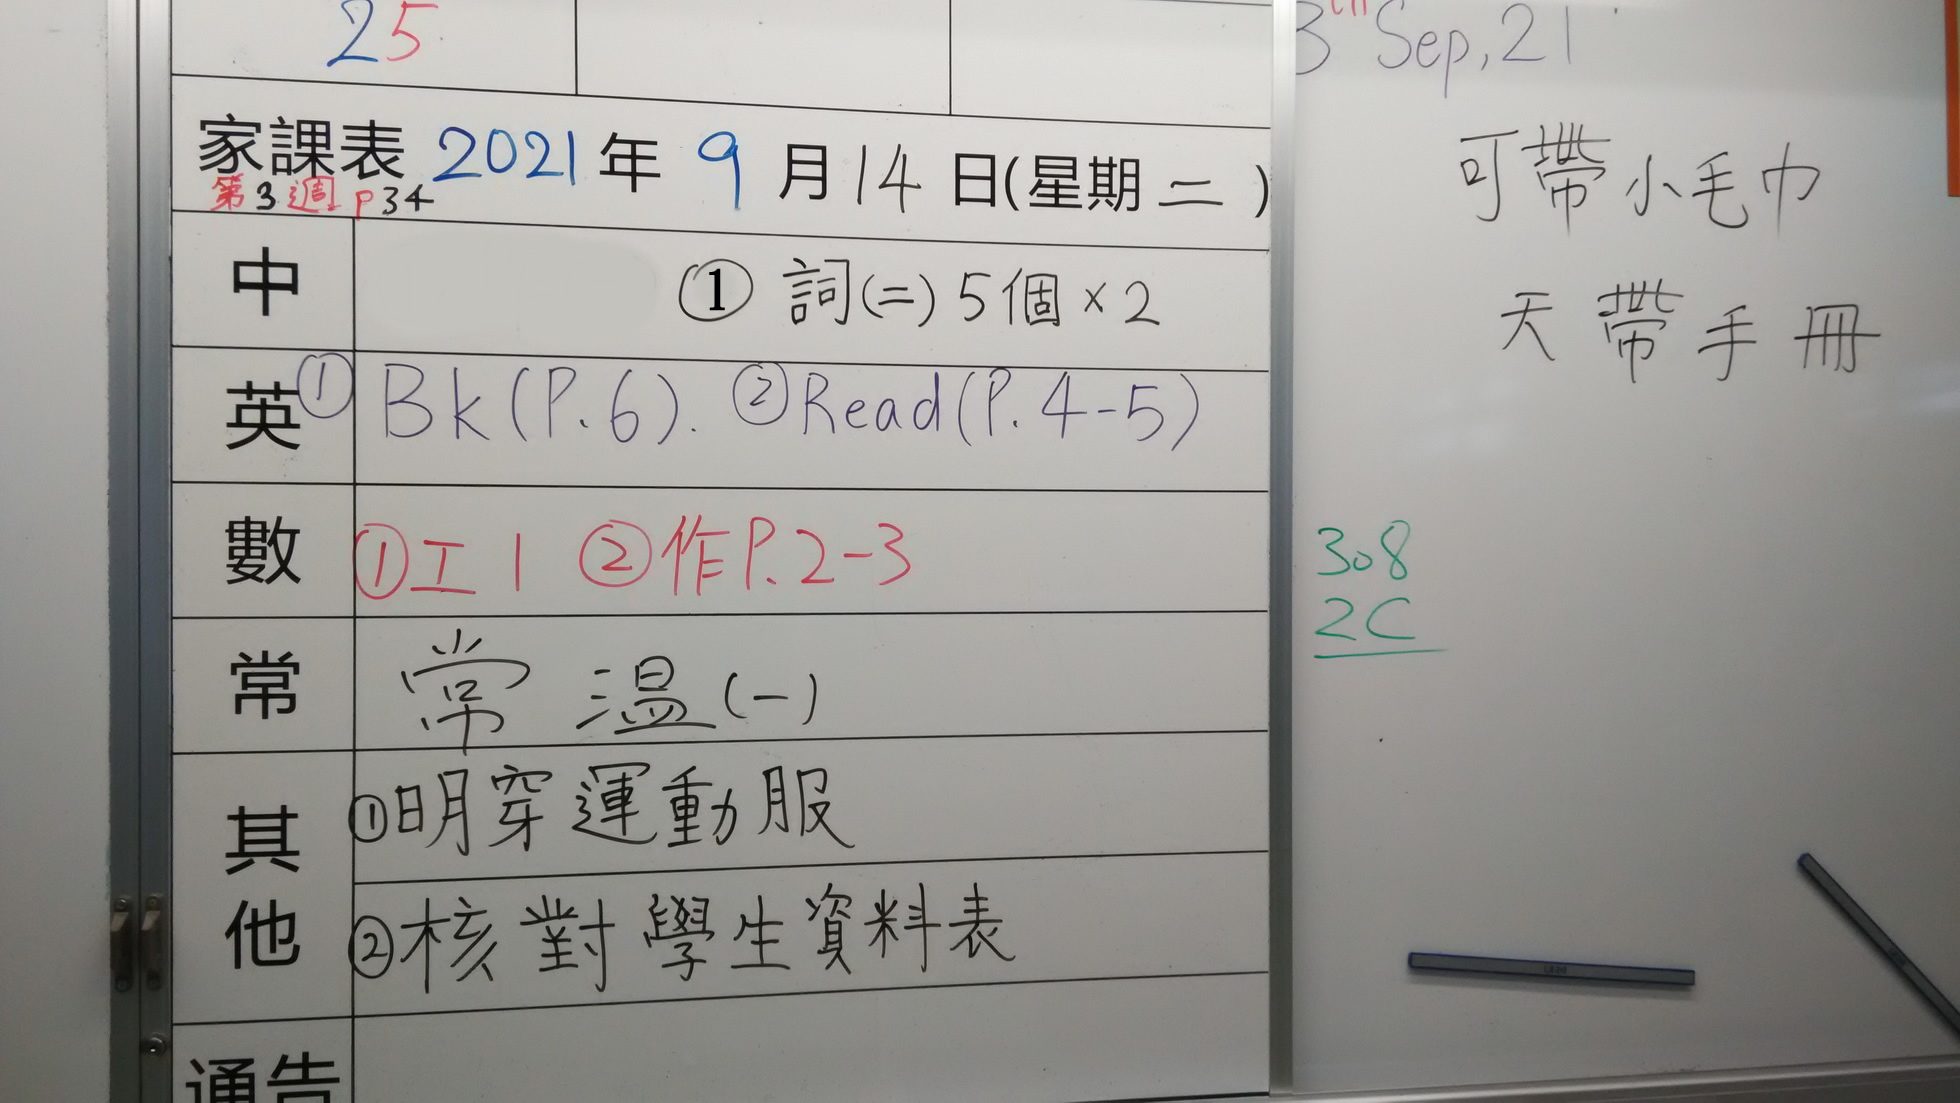 25
家課表 2021年 9月14日(星期二)
第3週 P34
中 ① 詞(二) 5個×2
英 ① Bk(P.6). ② Read(P.4-5)
數 ①工1 ②作P.2-3
常 常溫(一)
其他 ①明穿運動服
②核對學生資料表
通告
Sep, 21
可帶小毛巾
天帶手冊
308
2C